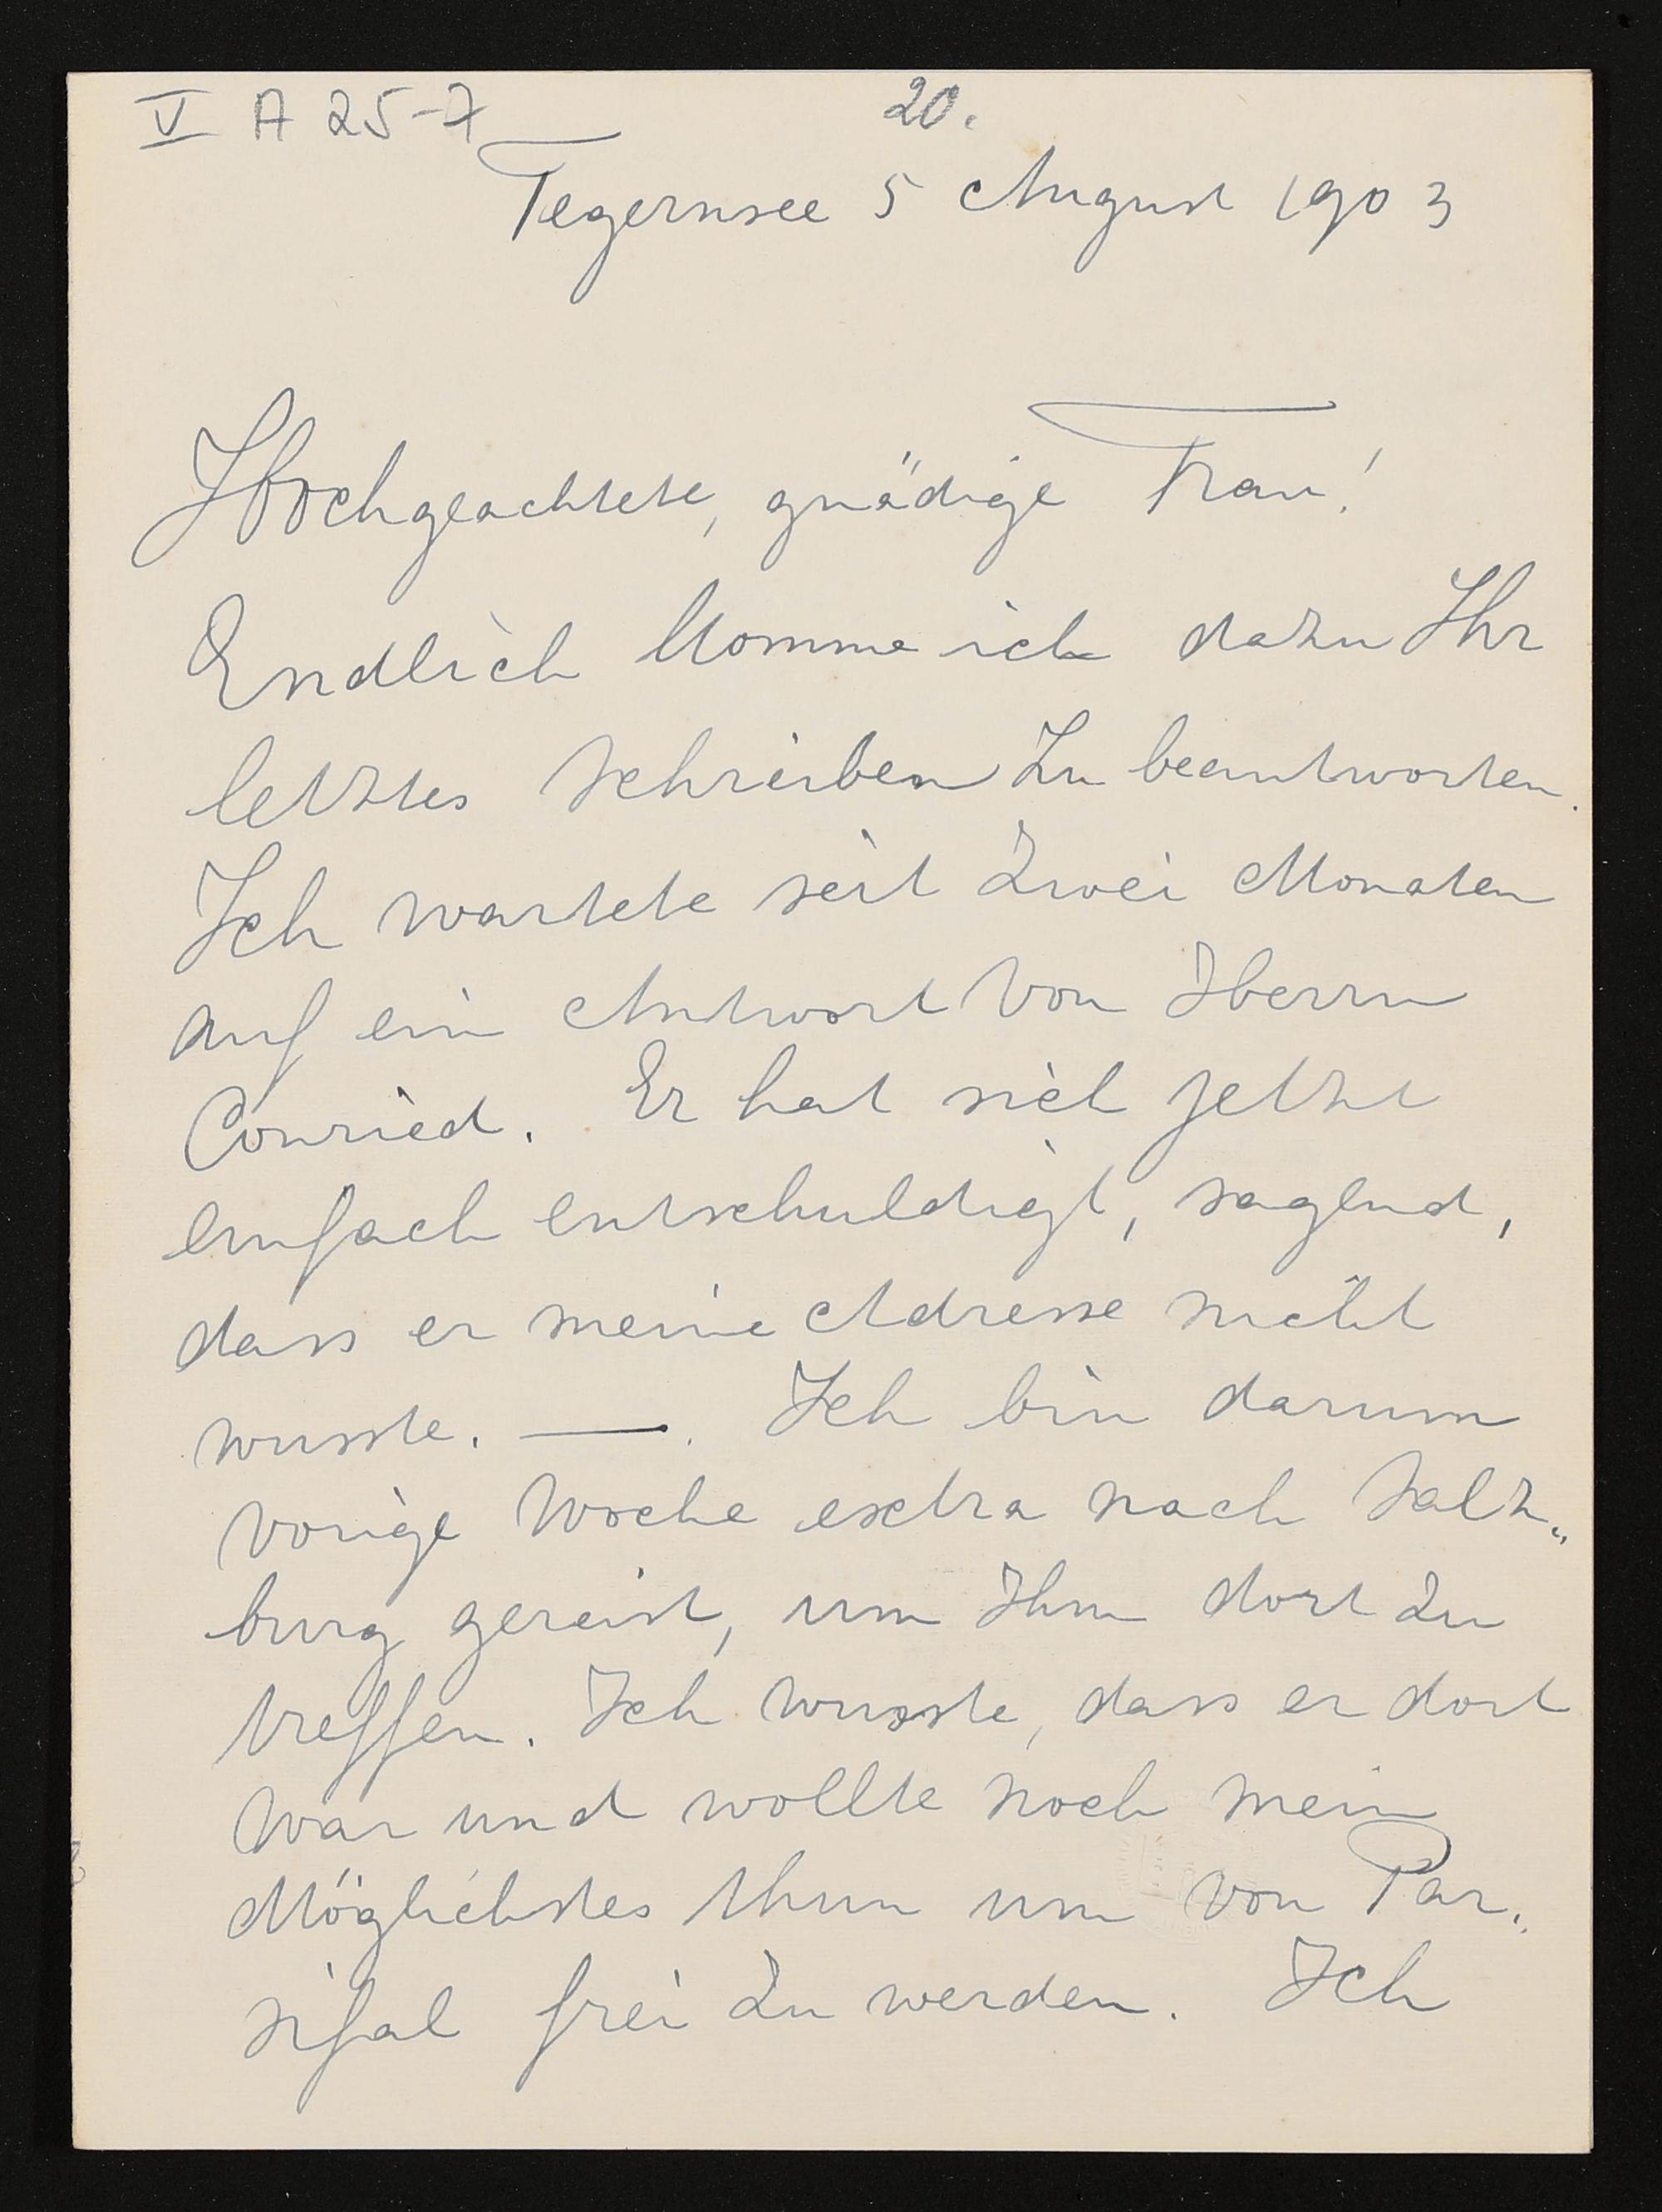 V A 25-7
20.
Tegernsee 5 August 1903
Hochgeachtete, gnädige Frau!
Endlich komme ich dazu Ihr
letztes Schreiben zu beantworten.
Ich wartete seit zwei Monaten
auf ein Antwort von Herrn
Conried. Er hat sich jetzt
einfach entschuldigt, sagend,
dass er meine Adresse nicht
wusste. —. Ich bin darum
vorige Woche extra nach Salz„
burg gereist, um Ihm dort zu
treffen. Ich wusste, dass er dort
war und wollte noch mein
Möglichstes thun um von Par„
sifal frei zu werden. Ich